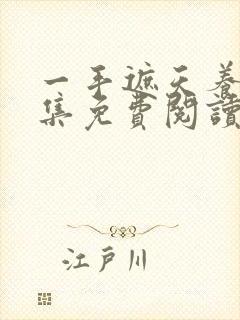 一手遮天養
集免費閱讀
江戸川